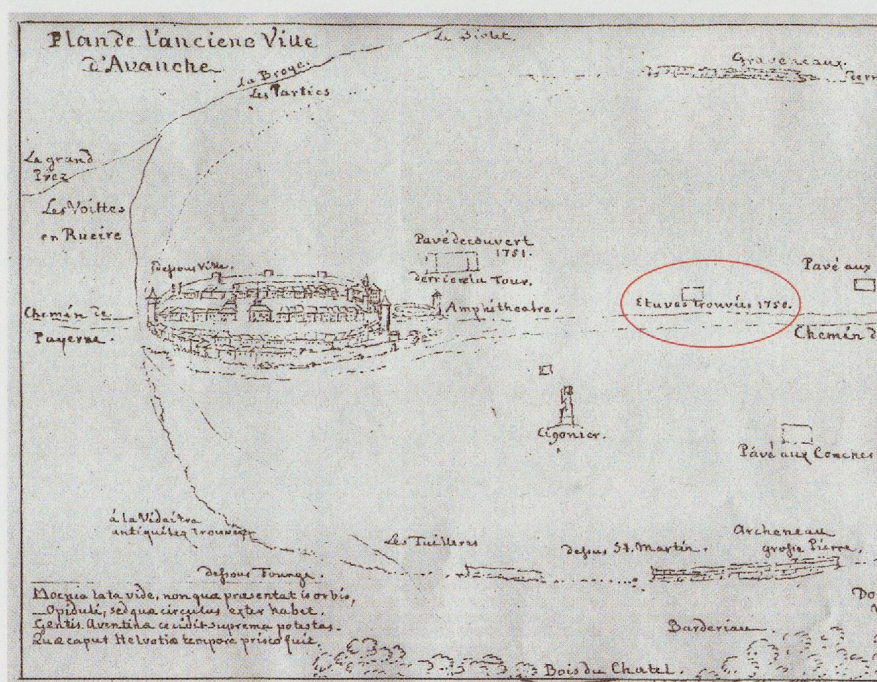 Plan de l'anciene Ville
d'Avanche
La Broye.
Les Parties
Le
Graveneaux.
La grand
Prez
Les Voittes
en Rueire
dessous Ville.
Pavé decouvert
1751.
derriere la Tour.
Amphitheatre.
Etuves trouvées 1750.
Pavé aux
Chemin de
Payerne.
Chemin d
Cigonier.
Pavé aux Conches
à la
antiquites trouvées
Les Tuilleres
dessus St. Martin.
Archeneau
grosse Pierre.
dessous
Moenia lata vide, non quæ præsentat is orbis,
Opiduli, sed quæ circulus exter habet.
Gentis Aventinæ cecidit suprema potestas.
Quæ caput Helvetiæ tempore prisco fuit.
Barderiau
Bois du Chatel.